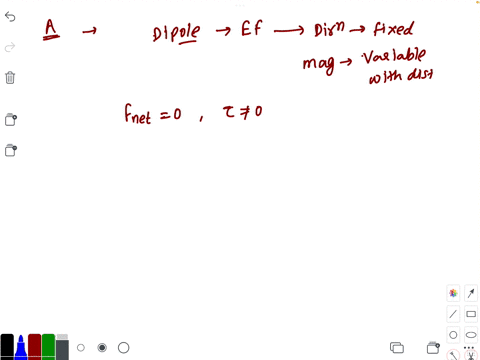 A → Dipole → Ef → Dirⁿ → fixed
mag → Variable
with dist
Fnet = 0 , τ ≠ 0